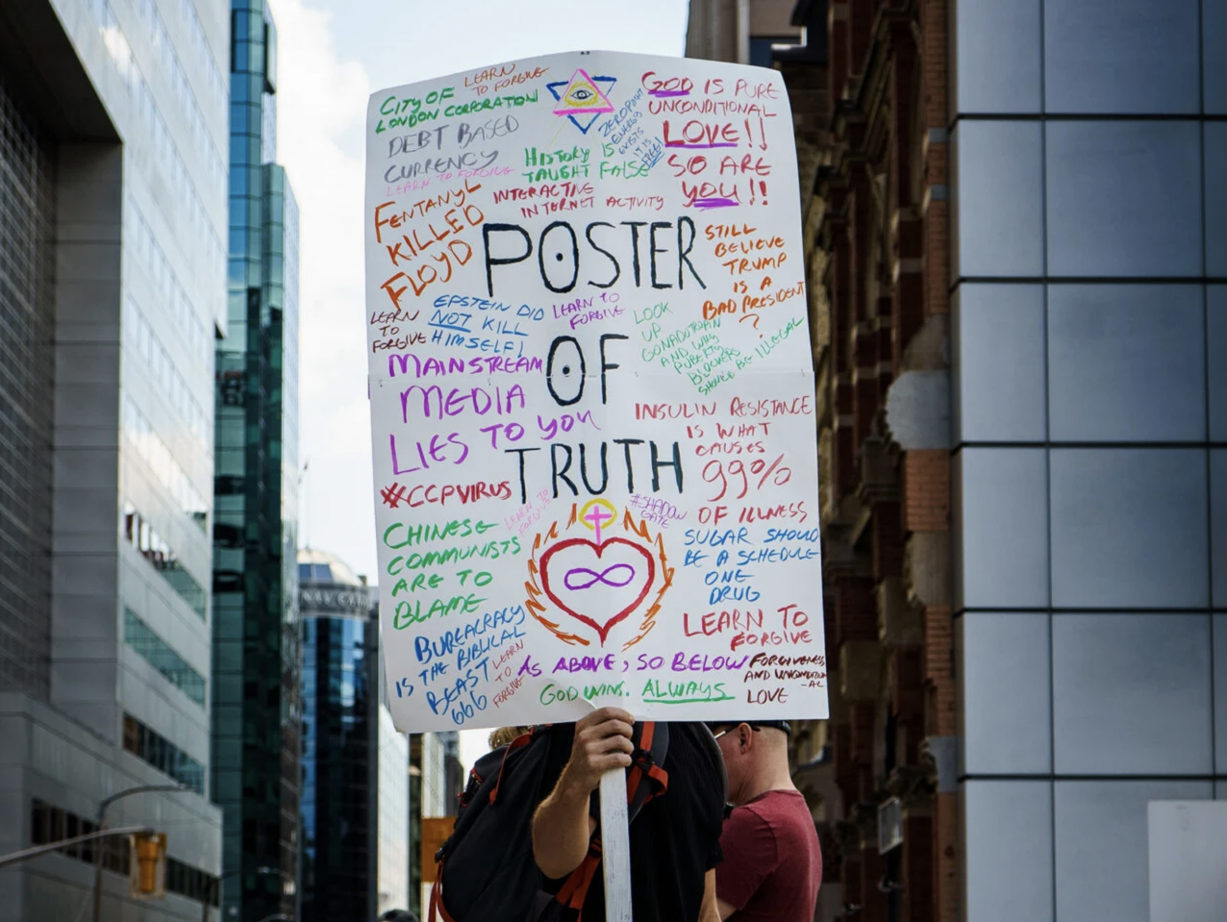 CITY OF
LONDON CORPORATION
LEARN
TO FORGIVE
DEBT BASED
CURRENCY
LEARN TO FORGIVE
ZEROPOINT
ENERGY
EXISTS
IT IS
FREE!
HISTORY IS
TAUGHT FALSE
GOD IS PURE
UNCONDITIONAL
LOVE!!
SO ARE
YOU!!
INTERACTIVE
INTERNET ACTIVITY
FENTANYL
KILLED
FLOYD
POSTER
OF
TRUTH
STILL
BELIEVE
TRUMP
IS A
BAD PRESIDENT
?
LEARN
TO
FORGIVE
EPSTEIN DID
NOT KILL
HIMSELF!
LEARN TO
FORGIVE
LOOK
UP
GONADOTROPIN
AND WHY
PUBERTY
BLOCKERS
SHOULD BE ILLEGAL
MAINSTREAM
MEDIA
LIES TO YOU
INSULIN RESISTANCE
IS WHAT
CAUSES
99%
OF ILLNESS
#CCPVIRUS
LEARN TO
FORGIVE
#SHADOW
GATE
CHINESE
COMMUNISTS
ARE TO
BLAME
SUGAR SHOULD
BE A SCHEDULE
ONE
DRUG
LEARN TO
FORGIVE
BUREACRACY
IS THE BIBLICAL
BEAST
666
LEARN
TO
FORGIVE
AS ABOVE, SO BELOW
GOD WINS. ALWAYS
FORGIVENESS
AND
LOVE